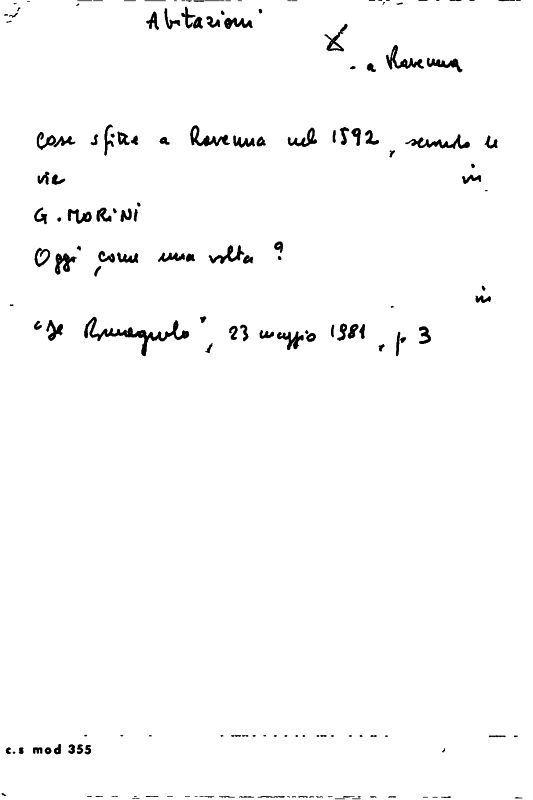 Abitazioni
- a Ravenna
Case sfitte a Ravenna nel 1592, secondo le
vie in
G. MORINI
Oggi come una volta ?
in
"Il Romagnolo", 23 maggio 1981, p 3
c.s mod 355